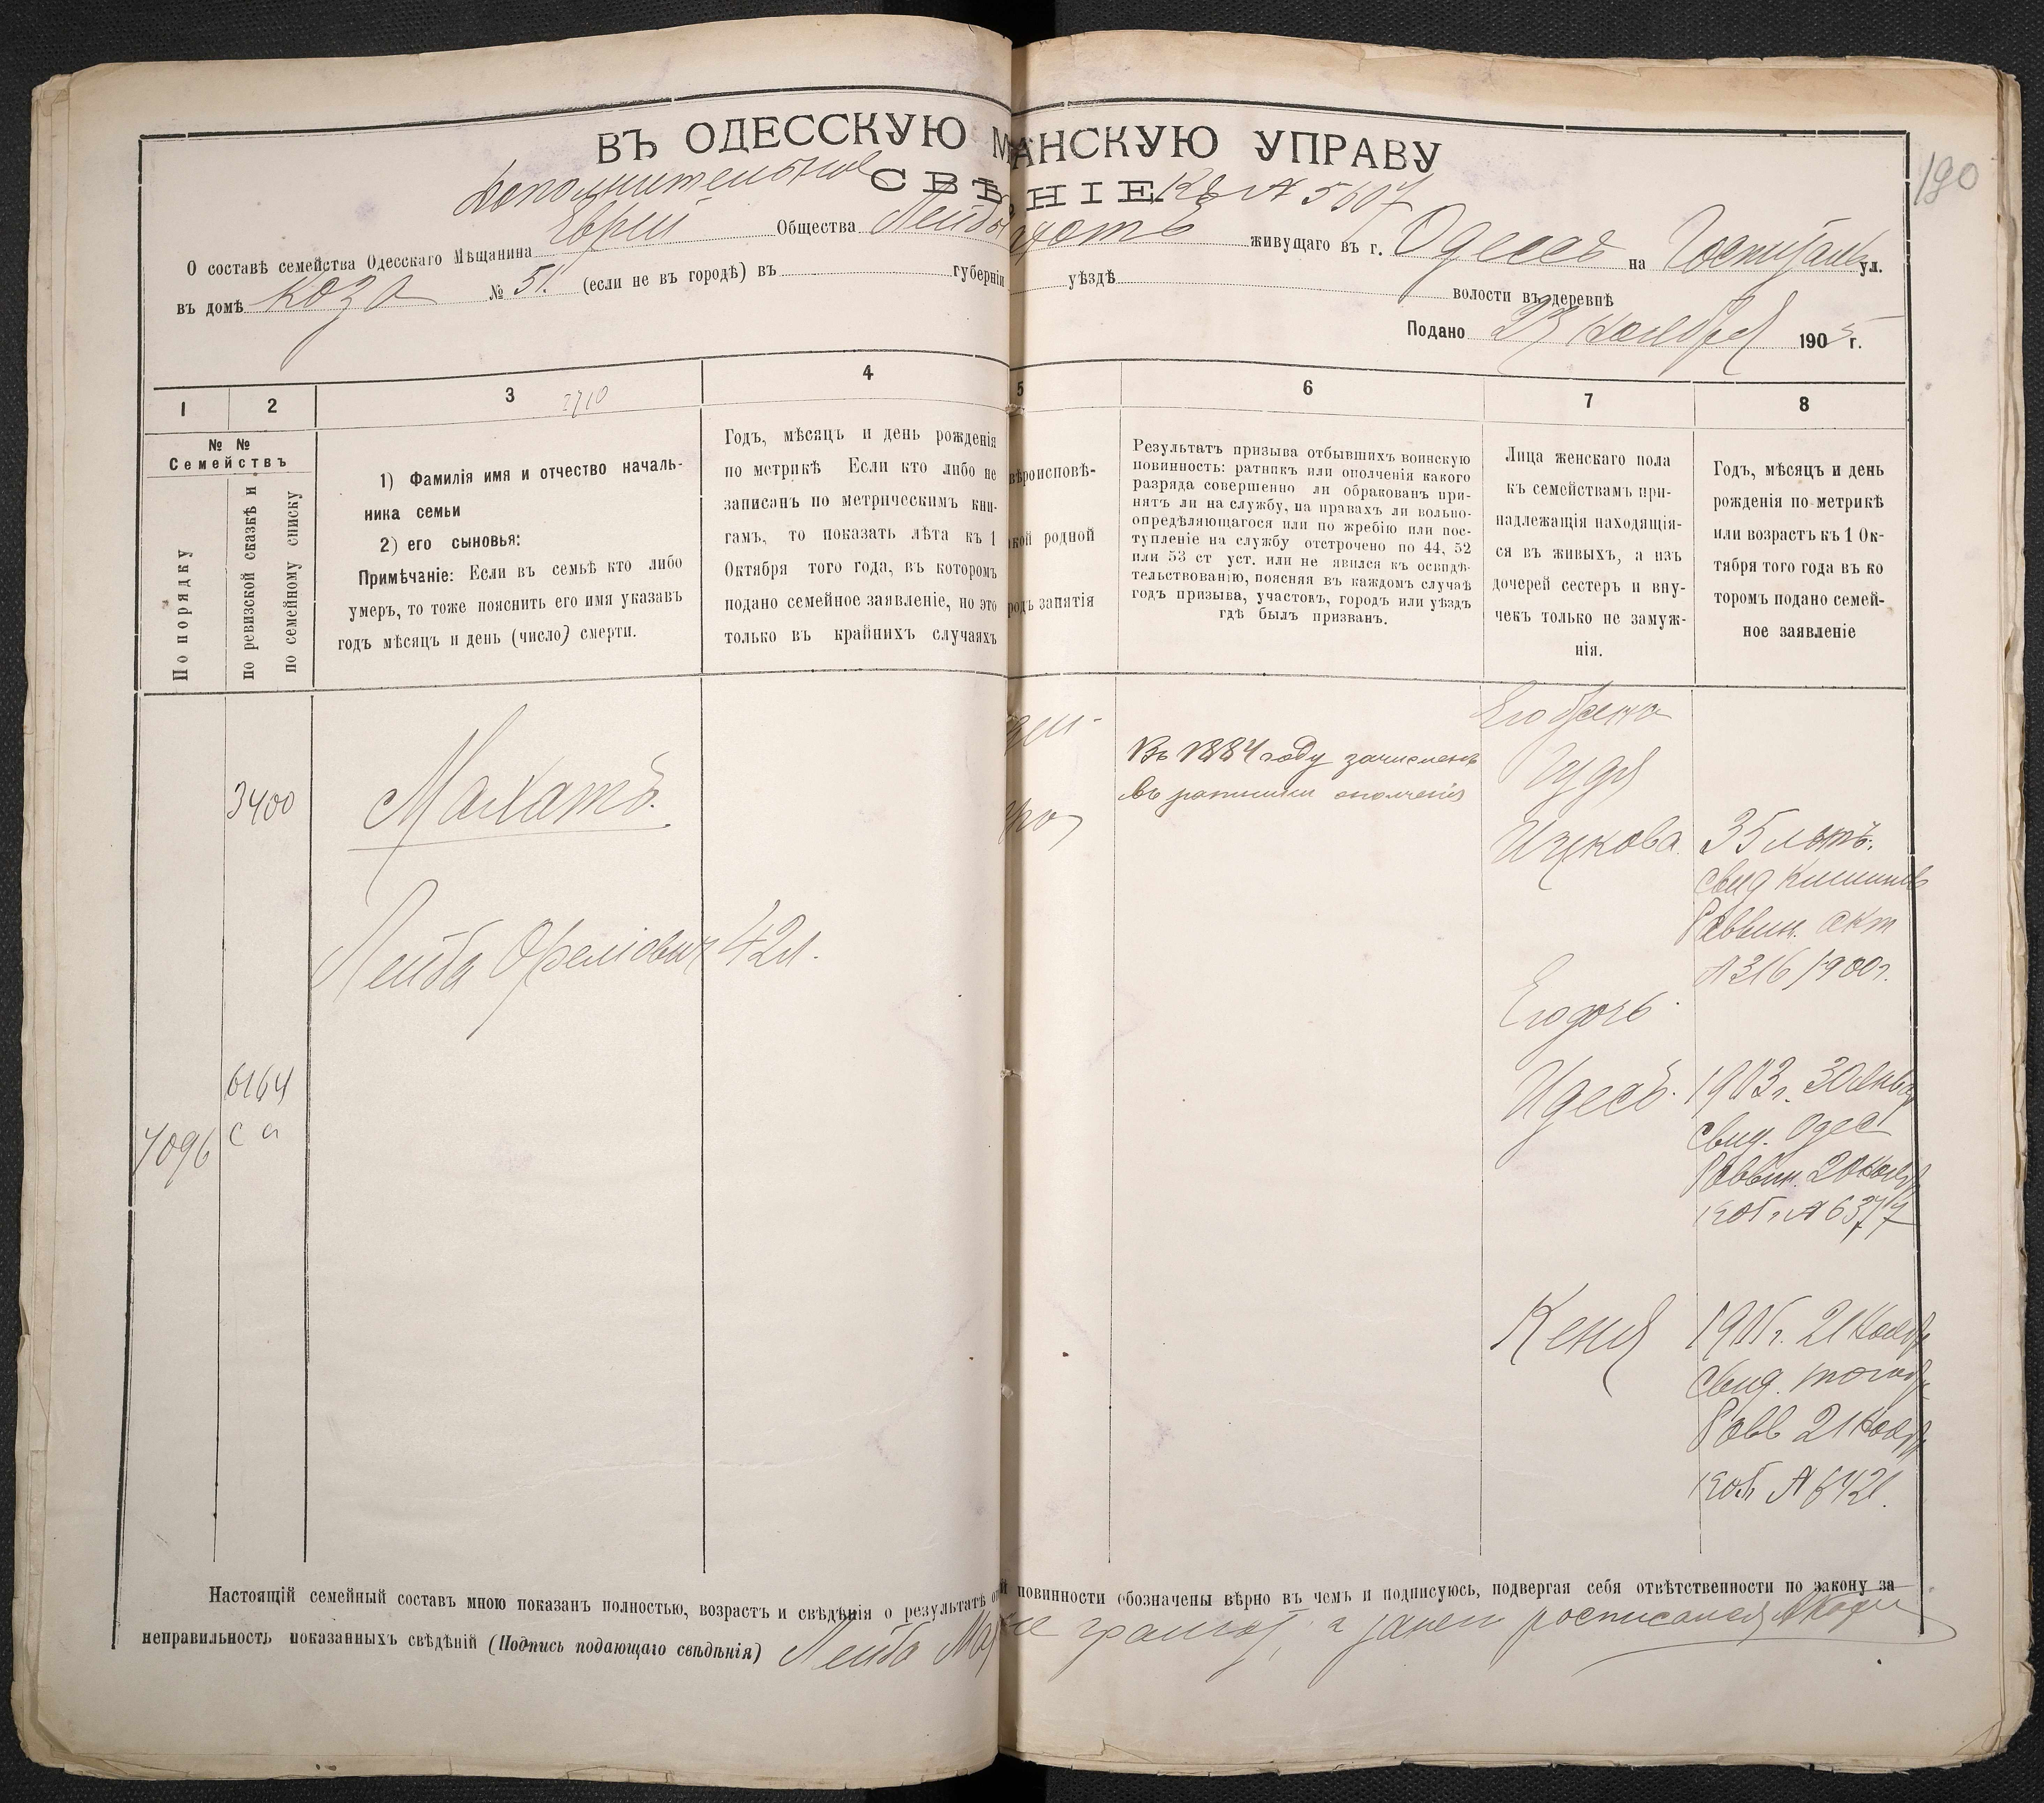 190
ВЪ ОДЕССКУЮ М АНСКУЮ УПРАВУ
Дополнительное СВѢ НІЕ Къ № 5607
О составѣ семейства Одесскаго Мѣщанина Еврей Общества Лейбы живущаго въ г. Одессѣ на Госпитальн ул.
въ домѣ Коза № 51. (если не въ городѣ) въ губерніи уѣздѣ волости въ деревнѣ
Подано 23 Ноября 1905 г.
1 2 3 4 5 6 7 8
2710
№ №
Семействъ
По порядку
по ревизской сказкѣ и
по семейному списку
1) Фамилія имя и отчество началь-
ника семьи
2) его сыновья:
Примѣчаніе: Если въ семьѣ кто либо
умеръ, то тоже пояснить его имя указавъ
годъ мѣсяцъ и день (число) смерти.
Годъ, мѣсяцъ и день рожденія
по метрикѣ Если кто либо не
записанъ по метрическимъ кни-
гамъ, то показать лѣта къ 1
Октября того года, въ которомъ
подано семейное заявленіе, но это
только въ крайнихъ случаяхъ
вѣроисповѣ-
кой родной
родъ занятія
Результатъ призыва отбывшихъ воинскую
повинность: ратникъ или ополченія какого
разряда совершенно ли обракованъ при-
нятъ ли на службу, на правахъ ли вольно-
опредѣляющагося или по жребію или пос-
тупленіе на службу отстрочено по 44, 52
или 53 ст уст. или не явился къ освидѣ-
тельствованію, поясняя въ каждомъ случаѣ
годъ призыва, участокъ, городъ или уѣздъ
гдѣ былъ призванъ.
Лица женскаго пола
къ семействамъ при-
надлежащія находящія-
ся въ живыхъ, а изъ
дочерей сестеръ и вну-
чекъ только не замуж-
нія.
Годъ, мѣсяцъ и день
рожденія по метрикѣ
или возрастъ къ 1 Ок-
тября того года въ ко
торомъ подано семей-
ное заявленіе
3400
Махатъ.
Лейба Орелiовичъ 42 л.
6164
с с
7096
Въ 1884 году зачисленъ
въ ратники ополченія
Его жена
Ицкова.
35 лѣтъ.
Свид Кишинев
Раввин. акт
№ 316 1900 г.
Его дочь
Идесъ.
1903 г. 30 Январ
Свид. Одес
Раввин. 20 Нояб
1905 г. № 6377
Кеня
1905 г. 21 Нояб
Свид. того же
Равв 21 Нояб
1905 № 6421.
Настоящій семейный составъ мною показанъ полностью, возрастъ и свѣдѣнія о результатѣ от й повинности обозначены вѣрно въ чемъ и подписуюсь, подвергая себя отвѣтственности по закону за
неправильность показанныхъ свѣдѣній (Подпись подающаго свѣдѣнія) Лейба Ма не грамот, а за него росписался